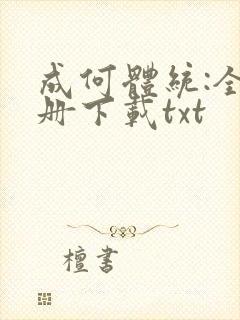 成何體統:全
册下載txt
檀書